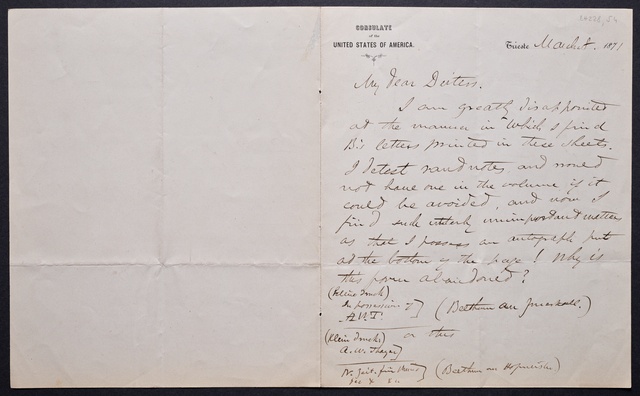 CONSULATE
of the
UNITED STATES OF AMERICA.
Trieste March 1871
My dear Deiters.
I am greatly disappointed
at the manner in which I find
B's letters printed in these sheets.
I detest and would
not have one in the volume if it
could be avoided, and now I
find such utterly unimportant matters
as that I possess an autograph put
at the bottom of the page! Why is
this form abandoned?
In possession of
A.W.T. (Beethoven an
or this
A. W. Thayer
(Beethoven an Hofmeister)